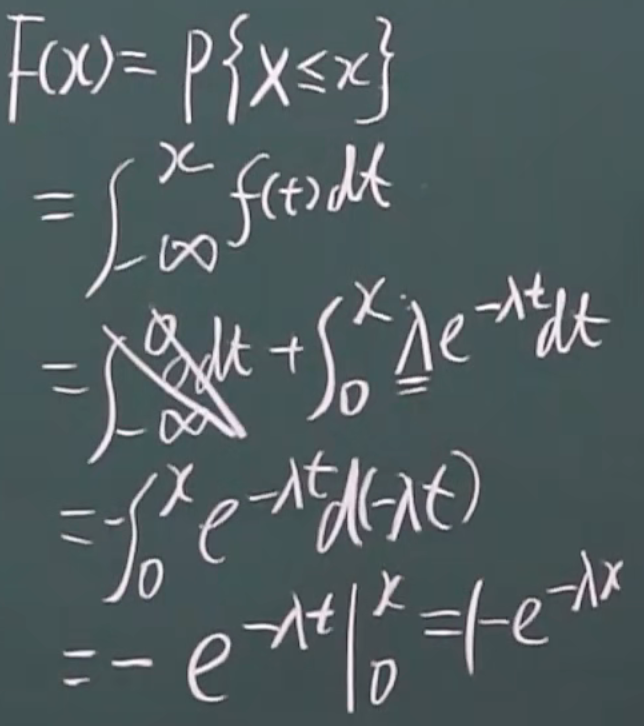 F(x)= P{X≤x}
= ∫_{-∞}^{x} f(t)dt
= ∫_{-∞}^{0} 0dt + ∫_{0}^{x} λe^{-λt}dt
= -∫_{0}^{x} e^{-λt}d(-λt)
= - e^{-λt}|_{0}^{x} = 1-e^{-λx}